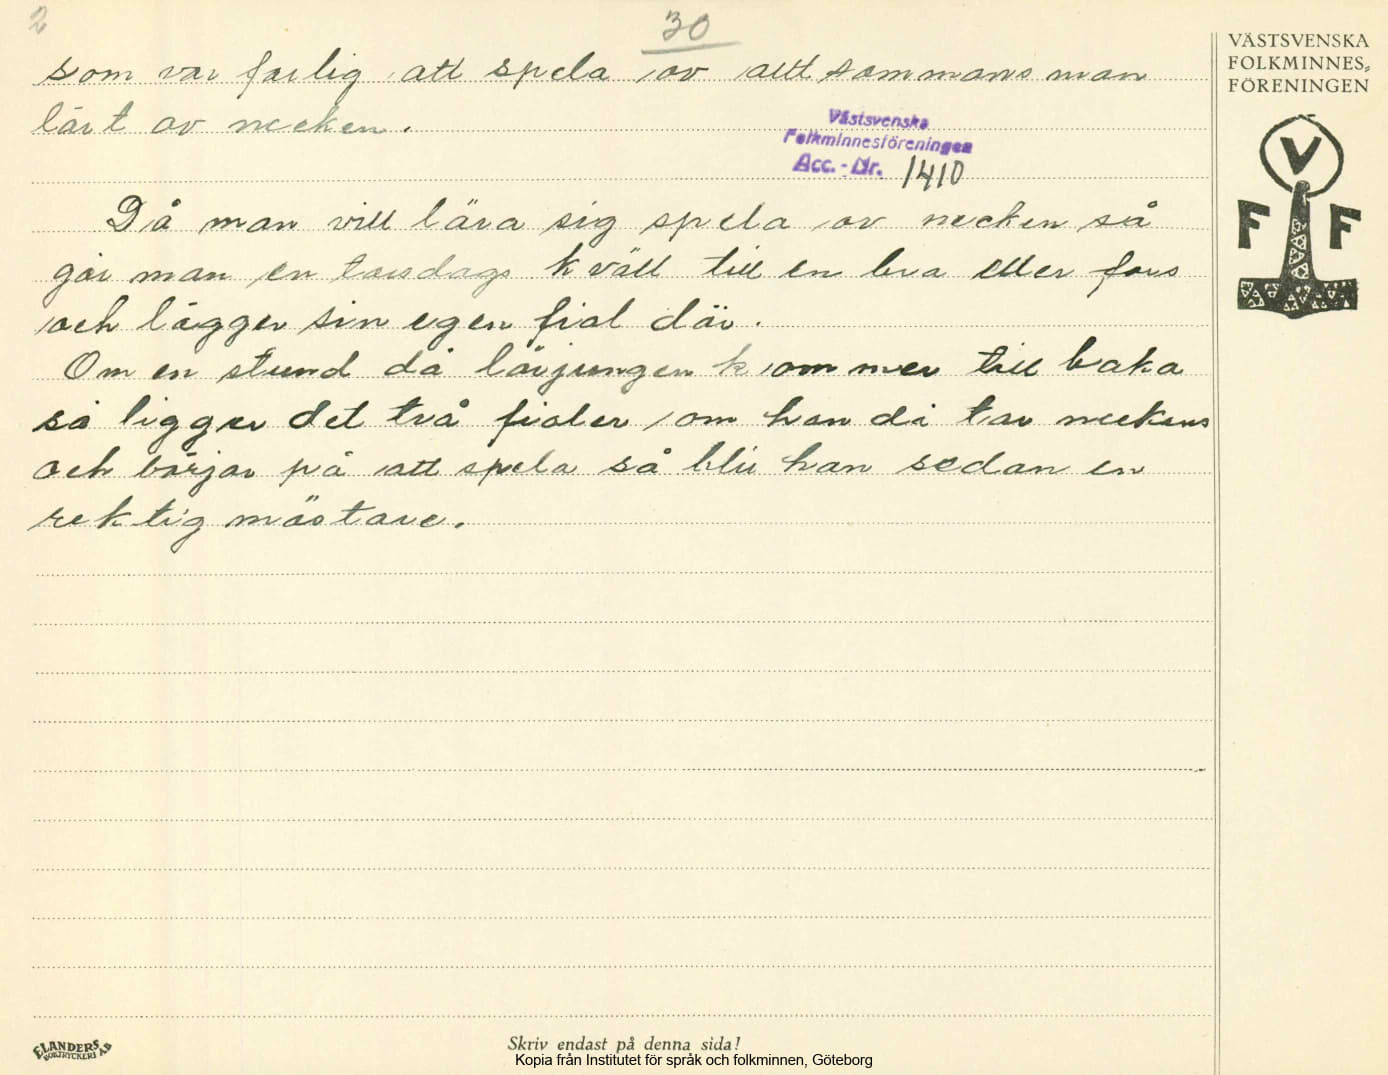 2
30
som var farlig att spela av allt sammans man
lärt av necken.
Västsvenska
Folkminnesföreningen
Acc. - Nr. 1410
Då man vill lära sig spela av necken så
går man en torsdags kväll till en bra eller fors
och lägger sin egen fiol där.
Om en stund då lärjungen kommer till baka
så ligger det två fioler om han då tar neckens
och börjar på att spela så blir han sedan en
rektig mästare.
VÄSTSVENSKA
FOLKMINNES-
FÖRENINGEN
V
F F
ELANDERS
BOKTRYCKERI AB
Skriv endast på denna sida!
Kopia från Institutet för språk och folkminnen, Göteborg